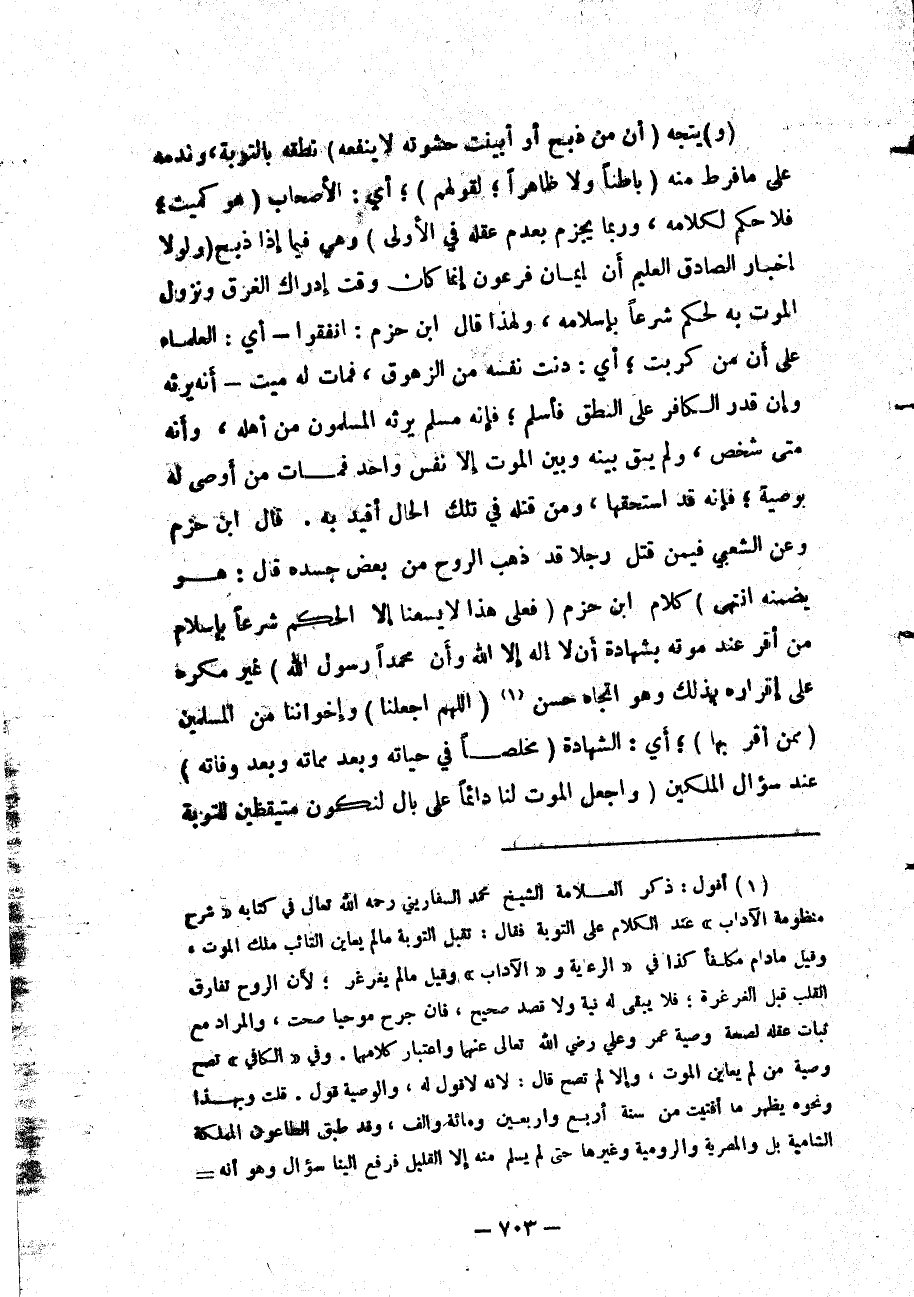 (و)يتجه ( أن من ذبح أو أبينت حشوته لاينفعه ) نطقه بالتوبة، وندمه
على مافرط منه ( باطناً ولا ظاهراً ؛ لقولهم ) ؛ أي : الأصحاب ( هو كميت ؛
فلا حكم لكلامه ، وربما يجزم بعدم عقله في الأولى ) وهي فيما إذا ذبح (ولولا
إخبار الصادق العليم أن إيمان فرعون إنما كان وقت إدراك الغرق ونزول
الموت به لحكم شرعاً بإسلامه ، ولهذا قال ابن حزم : اتفقوا – أي : العلماء
على أن من كربت ؛ أي : دنت نفسه من الزهوق ، فمات له ميت – أنه يرثه
وإن قدر الكافر على النطق فأسلم ؛ فإنه مسلم يرثه المسلمون من أهله ، وأنه
متى شخص ، ولم يبق بينه وبين الموت إلا نفس واحد فمات من أوصى له
بوصية ؛ فإنه قد استحقها ، ومن قتله في تلك الحال أقيد به . قال ابن حزم
وعن الشعبي فيمن قتل رجلا قد ذهب الروح من بعض جسده قال : هو
يضمنه انتهى ) كلام ابن حزم ( فعلى هذا لايسعنا إلا الحكم شرعاً بإسلام
من أقر عند موته بشهادة أن لا إله إلا الله وأن محمداً رسول الله ) غير مكره
على إقراره بذلك وهو اتجاه حسن (١) ( اللهم اجعلنا ) وإخواننا من المسلمين
( ممن أقر بها ) ؛ أي : الشهادة ( مخلصاً في حياته وبعد مماته وبعد وفاته )
عند سؤال الملكين ( واجعل الموت لنا دائماً على بال لنكون متيقظين للتوبة
(١) أقول : ذكر العلامة الشيخ محمد السفاريني رحمه الله تعالى في كتابه « شرح
منظومة الآداب » عند الكلام على التوبة فقال : تقبل التوبة مالم يعاين التائب ملك الموت ،
وقيل مادام مكلفاً كذا في « الرعاية و « الآداب » وقيل مالم يغرغر ؛ لأن الروح تفارق
القلب قبل الغرغرة ؛ فلا يبقى له نية ولا قصد صحيح ، فان جرح موحيا صحت ، والمراد مع
ثبات عقله لصحة وصية عمر وعلي رضي الله تعالى عنهما واعتبار كلامهما . وفي « الكافي » تصح
وصية من لم يعاين الموت ، وإلا لم تصح قال : لانه لاقول له ، والوصية قول . قلت وبهذا
ونحوه يظهر ما أفتيت من سنة أربع واربعين ومائة والف ، وقد طبق الطاعون المملكة
الشامية بل والمصرية والرومية وغيرها حتى لم يسلم منه إلا القليل فرفع الينا سؤال وهو أنه =
– ٧٠٣ –